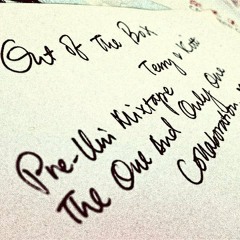 Out Of The Box
Terry x Kitt
Pre-Uni Mixtape
The One And Only One
Collaboration